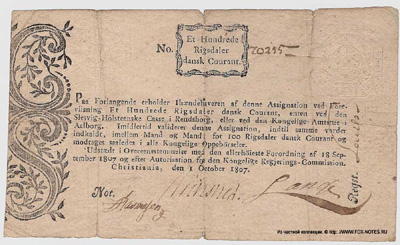 Et Hundrede
No. Rigsdaler 20215
dansk Courant.
Paa Forlangende erholder Ihændehaveren af denne Assignation ved Fore-
viisning Et Hundrede Rigsdaler dansk Courant, enten ved den
Slesvig-Holsteenske Casse i Rendsborg, eller ved den Kongelige Amtstue i
Aalborg. Imidlertid validerer denne Assignation, indtil samme vorder
indkaldt, imellem Mand og Mand for 100 Rigsdaler dansk Courant og
modtages saaledes i alle Kongelige Oppebørseler.
Udstedt i Overeensstemmelse med den allerhöieste Forordning af 18 Sep-
tember 1807 og efter Autorisation fra den Kongelige Regjerings-Commission.
Christiania, den 1 October 1807.
Not. Lange